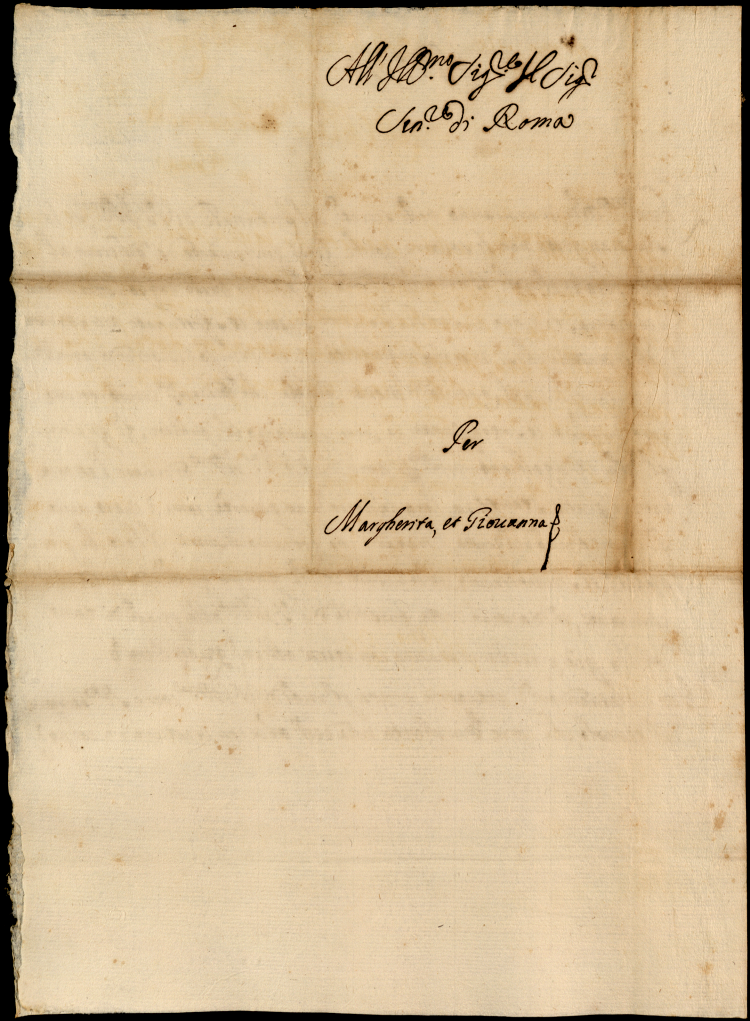 All' Ill.mo Sig.re Il Sig.r
Sen.re di Roma
Per
Margherita, et Giouanna